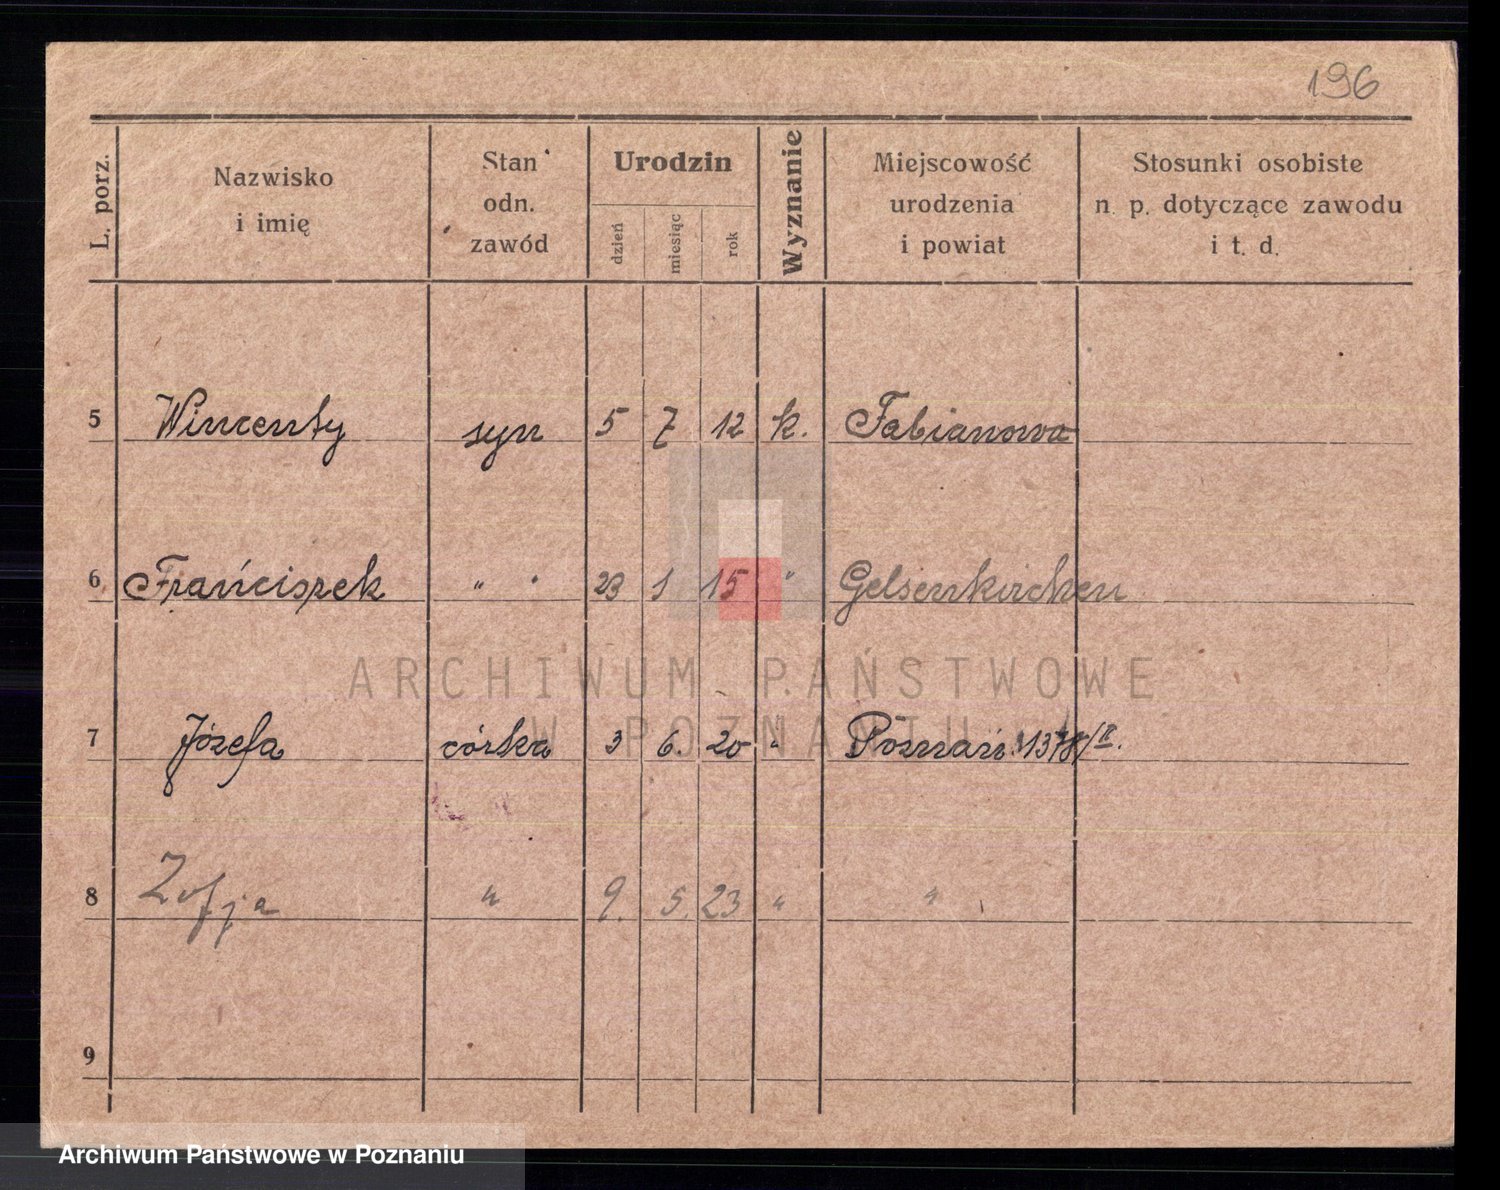 196
L. porz.
Nazwisko
i imię
Stan
odn.
zawód
Urodzin
dzień
miesiąc
rok
Wyznanie
Miejscowość
urodzenia
i powiat
Stosunki osobiste
n. p. dotyczące zawodu
i t. d.
5 Wincenty syn 5 7 12 k. Fabianowa
6 Franciszek " 23 1 15 " Gelsenkirchen
ARCHIWUM PAŃSTWOWE
W POZNANIU
7 Józefa córka 3 6. 20 " Poznań 1378/II.
8 Zofja " 9. 5. 23 " "
9
Archiwum Państwowe w Poznaniu